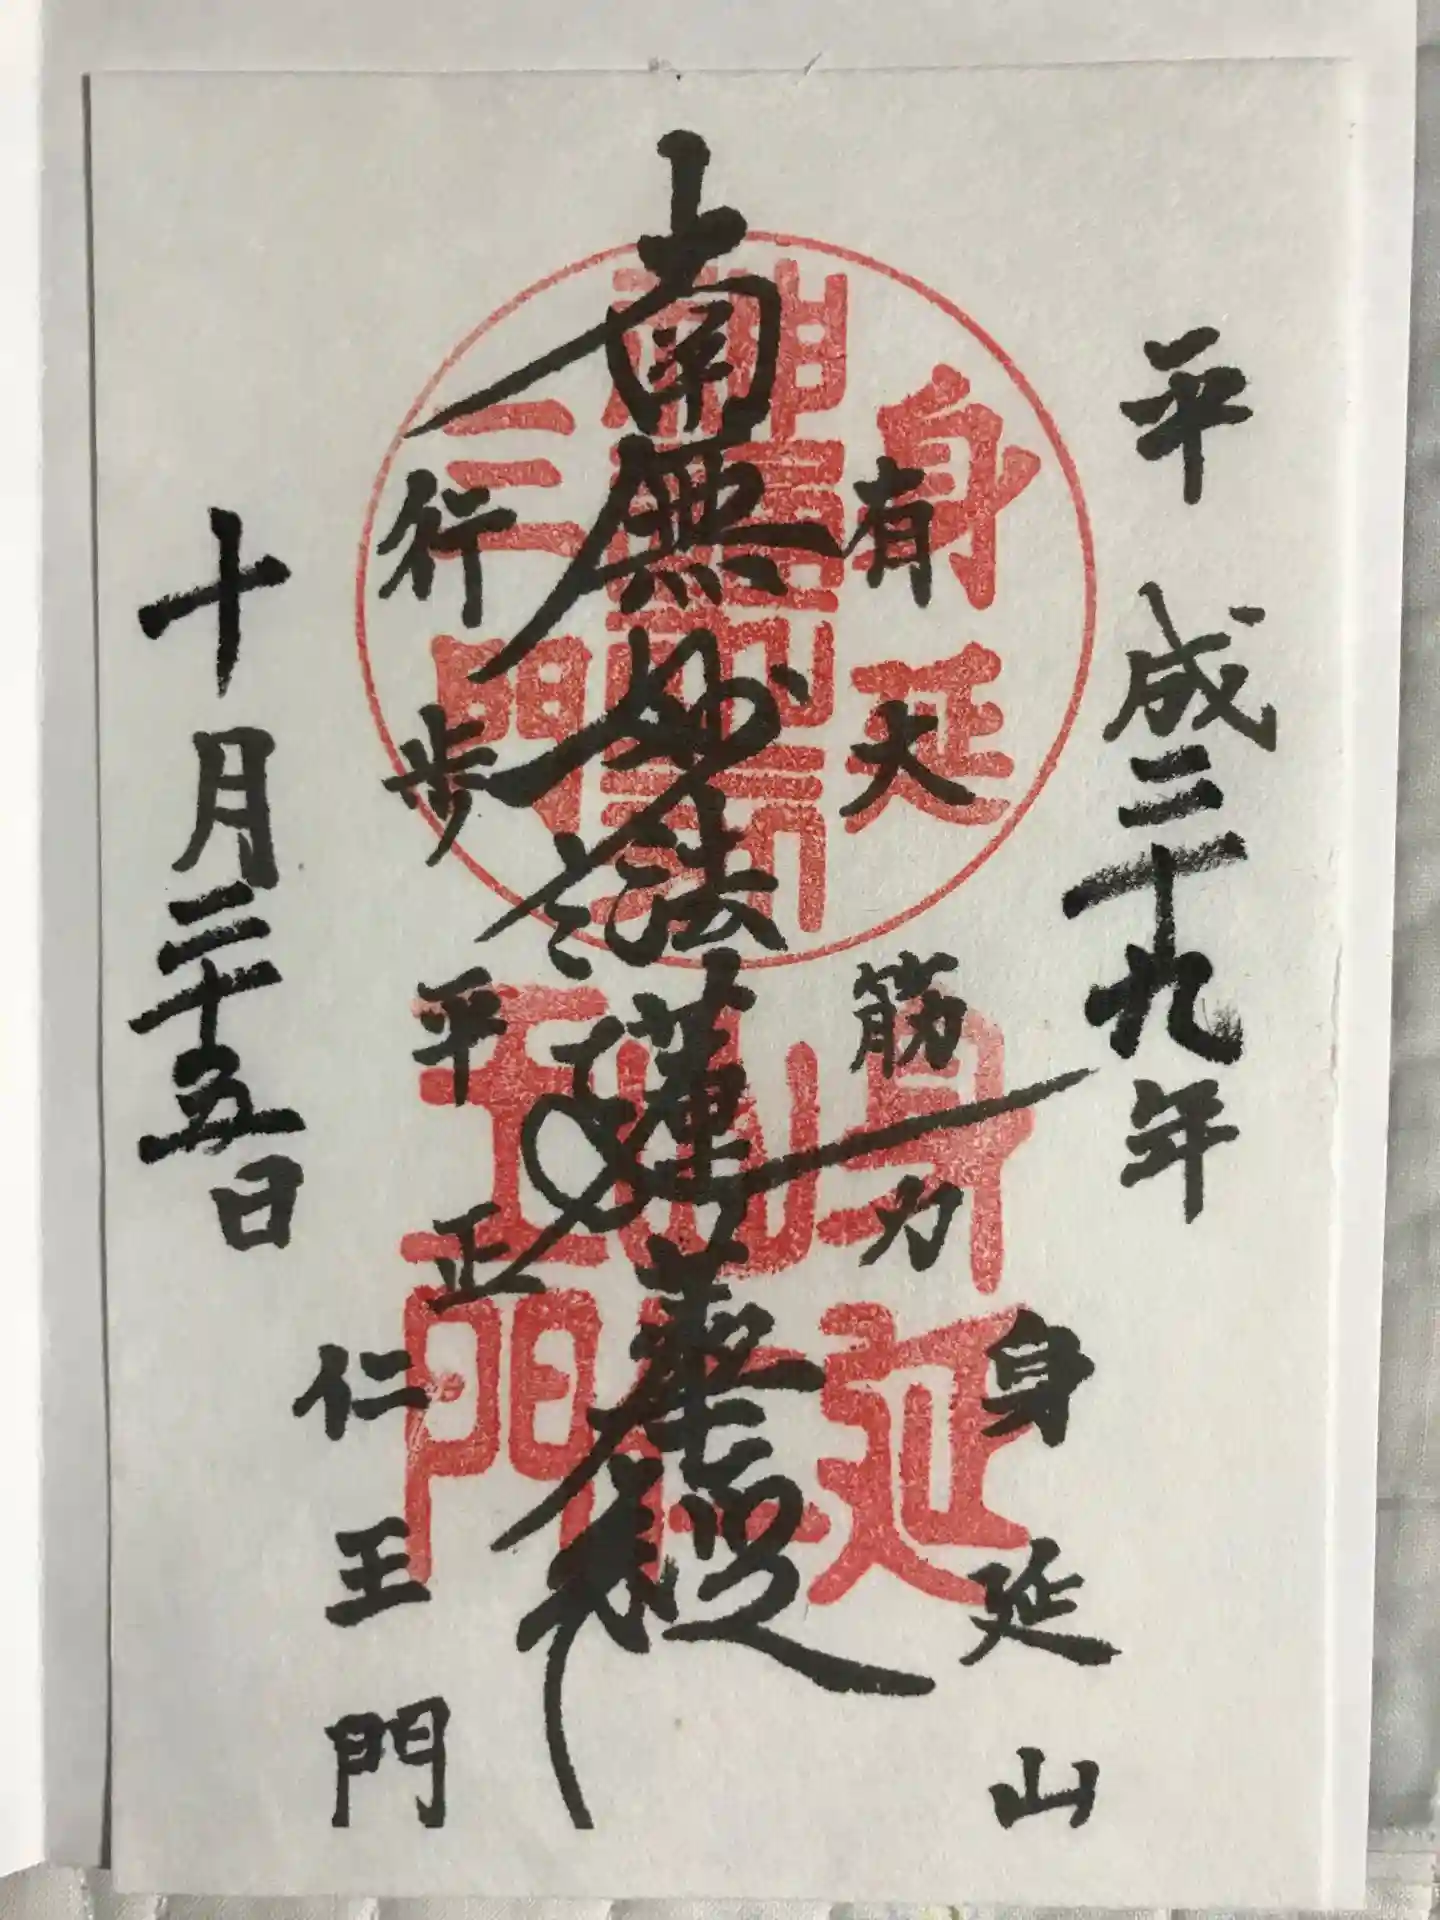 平成二十九年
身延山
有大筋力
南無妙法蓮華経
行歩平正
仁王門
十月二十五日
身延
三門
身延
山
王門